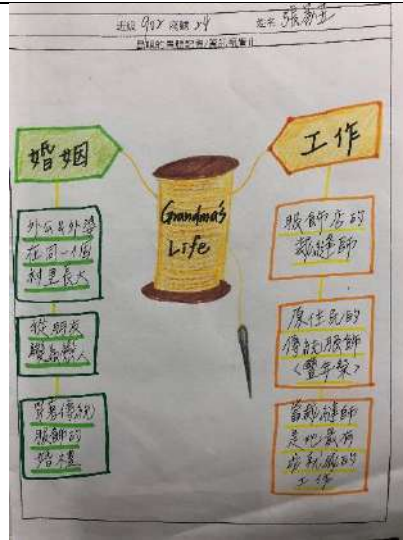 班級 902 座號 24 姓名
婚姻
外公與外婆
在同一個
村里長大
從朋友
變為戀人
穿著傳統
服飾的
婚禮
Grandma's
Life
工作
服飾店的
裁縫師
原住民的
傳統服飾
〈豐年祭〉
當裁縫師
是她最有
成就感的
工作